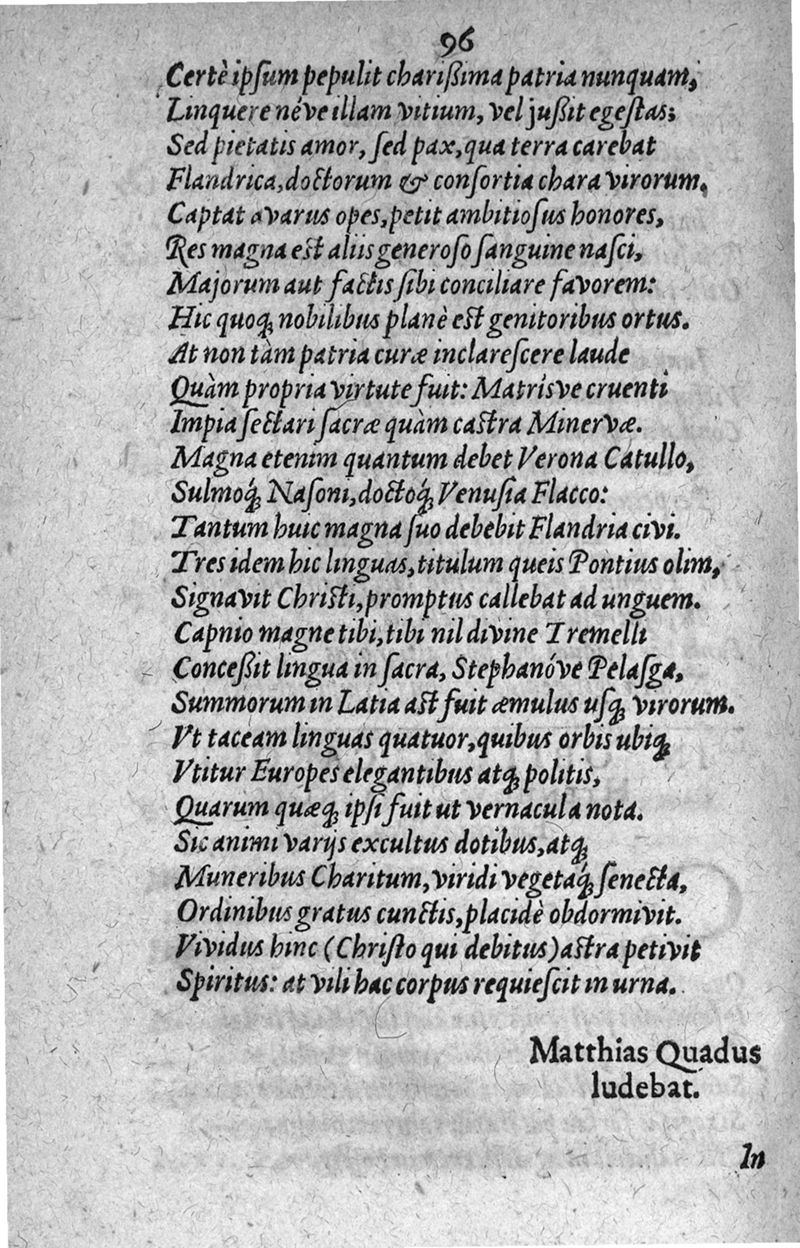 96
Certè ipſum pepulit charißima patria nunquam,
Linquere néve illam vitium, vel jußit egeſtas;
Sed pietatis amor, ſed pax, qua terra carebat
Flandrica, doctorum & conſortia chara virorum.
Captat avarus opes, petit ambitioſus honores,
Res magna est aliis generoſo ſanguine naſci,
Majorum aut factis ſibi conciliare favorem:
Hic quoq; nobilibus planè est genitoribus ortus.
At non tàm patria curæ inclareſcere laude
Quàm propria virtute fuit: Matrísve cruenti
Impia ſectari ſacræ quàm castra Minervæ.
Magna etenim quantum debet Verona Catullo,
Sulmoq́; Naſoni, doctoq́; Venuſia Flacco:
Tantum huic magna ſuo debebit Flandria civi.
Tres idem hic linguas, titulum queis Pontius olim,
Signavit Christi, promptus callebat ad unguem.
Capnio magne tibi, tibi nil divine Tremelli
Conceßit lingua in ſacra, Stephanóve Pelaſga,
Summorum in Latia ast fuit æmulus uſq; virorum.
Vt taceam linguas quatuor, quibus orbis ubiq;
Vtitur Europes elegantibus atq; politis,
Quarum quæq; ipſi fuit ut vernacula nota.
Sic animi varijs excultus dotibus, atq;
Muneribus Charitum, viridi vegetaq́; ſenecta,
Ordinibus gratus cunctis, placidè obdormivit.
Vividus hinc (Chriſto qui debitus) astra petivit
Spiritus: at vili hac corpus requieſcit in urna.
Matthias Quadus
ludebat.
In